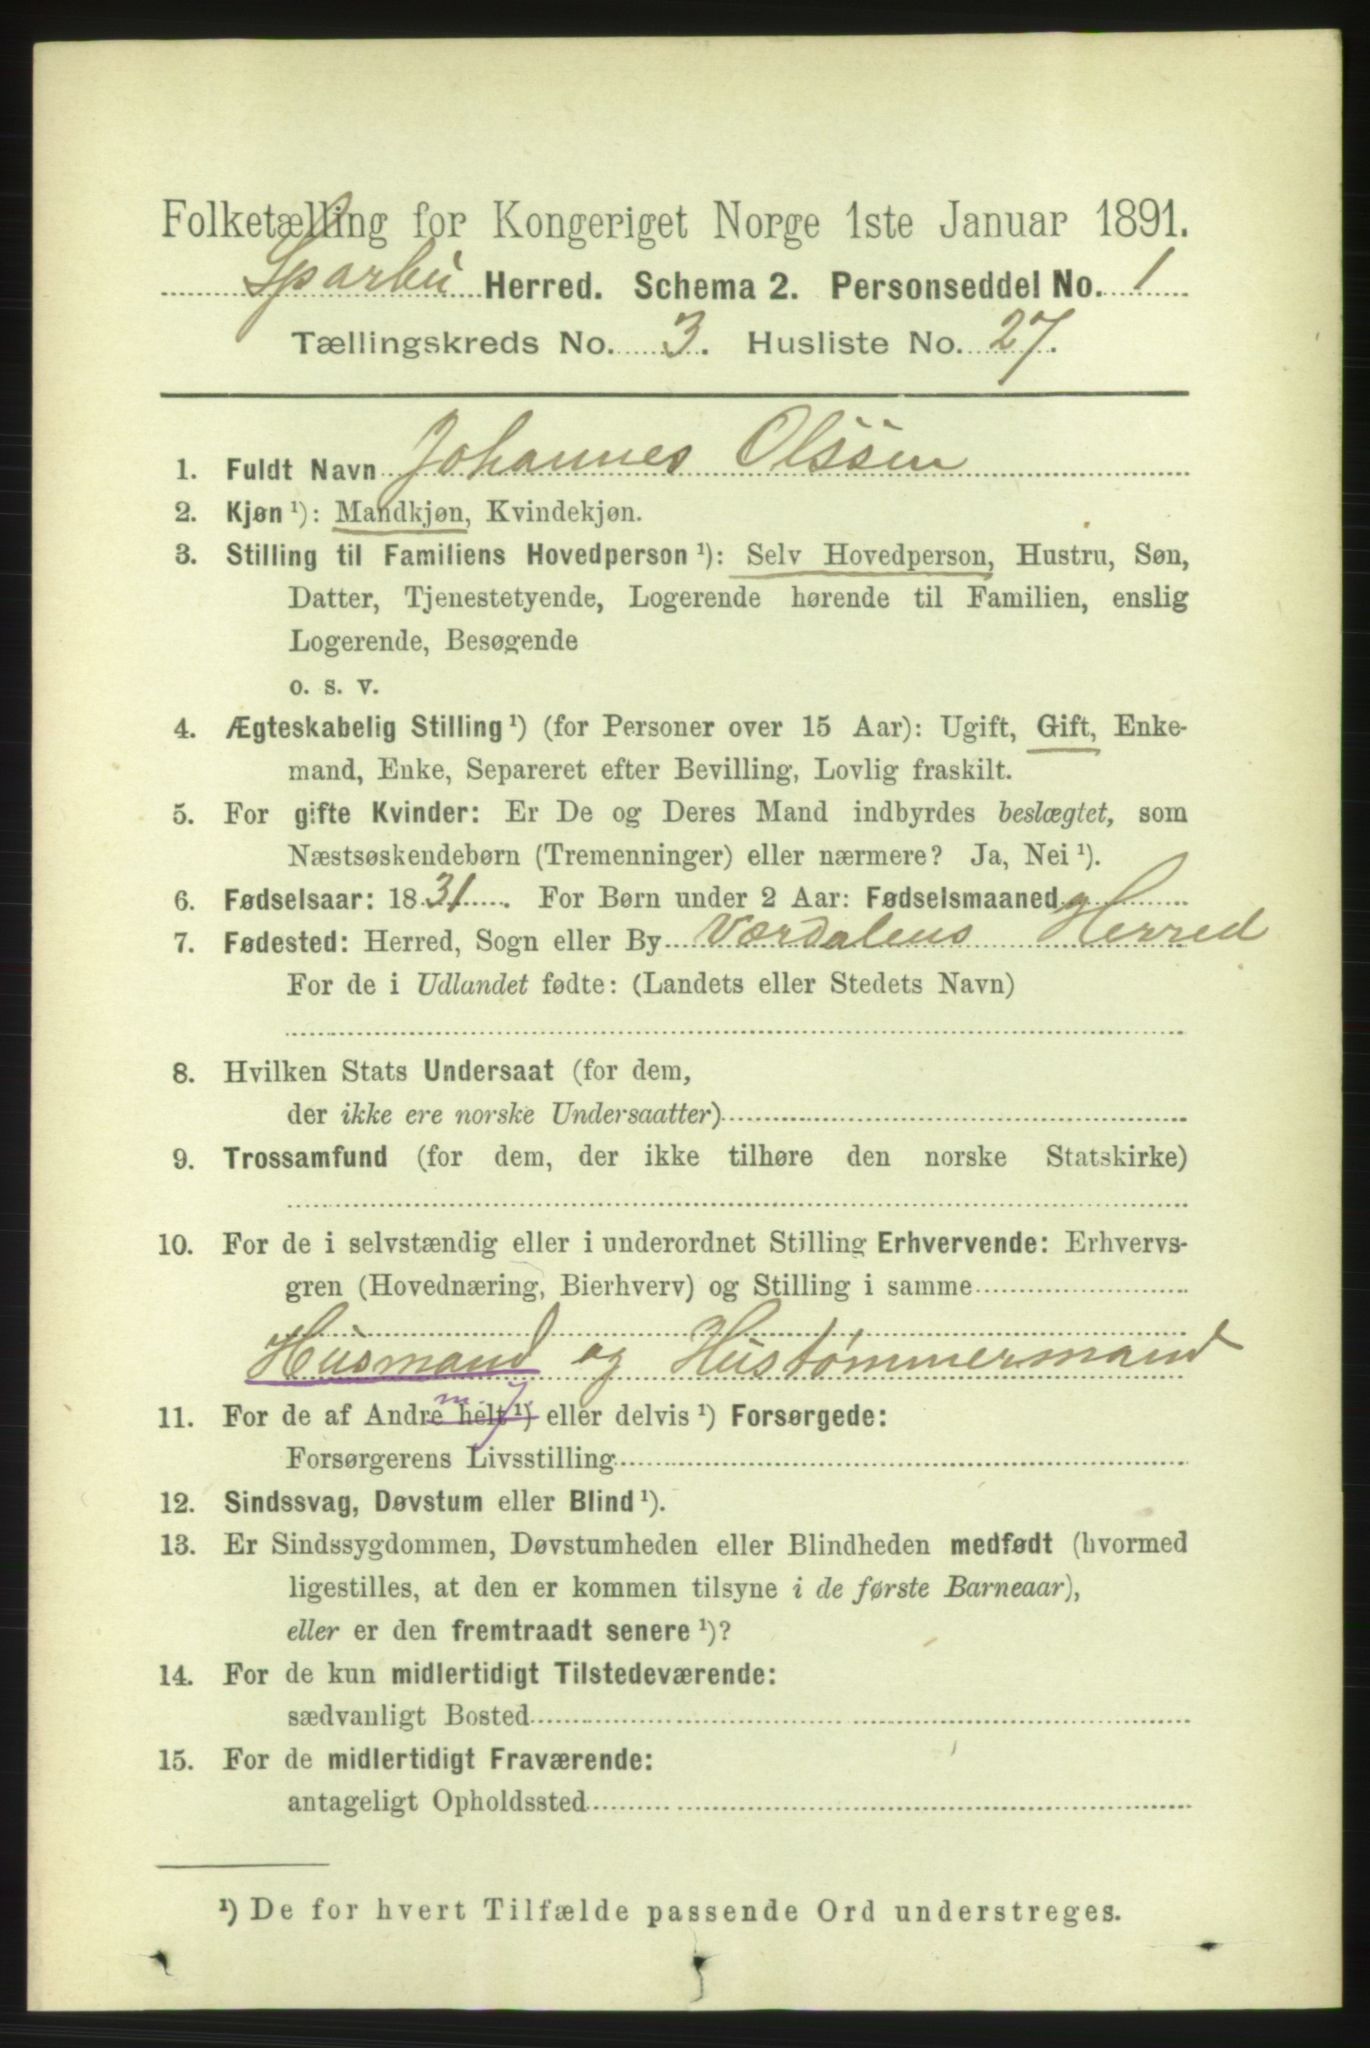 Folketælling for Kongeriget Norge 1ste Januar 1891.
Sparbu Herred. Schema 2. Personseddel No. 1
Tællingskreds No. 3. Husliste No. 27.
1. Fuldt Navn Johannes Olssen
2. Kjøn ¹): Mandkjøn, Kvindekjøn.
3. Stilling til Familiens Hovedperson ¹): Selv Hovedperson, Hustru, Søn,
Datter, Tjenestetyende, Logerende hørende til Familien, enslig
Logerende, Besøgende
o. s. v.
4. Ægteskabelig Stilling ¹) (for Personer over 15 Aar): Ugift, Gift, Enke-
mand, Enke, Separeret efter Bevilling, Lovlig fraskilt.
5. For gifte Kvinder: Er De og Deres Mand indbyrdes beslægtet, som
Næstsøskendebørn (Tremenninger) eller nærmere? Ja, Nei ¹).
6. Fødselsaar: 1831. For Børn under 2 Aar: Fødselsmaaned
7. Fødested: Herred, Sogn eller By Værdalens Herred
For de i Udlandet fødte: (Landets eller Stedets Navn)
8. Hvilken Stats Undersaat (for dem,
der ikke ere norske Undersaatter)
9. Trossamfund (for dem, der ikke tilhøre den norske Statskirke)
10. For de i selvstændig eller i underordnet Stilling Erhvervende: Erhvervs-
gren (Hovednæring, Bierhverv) og Stilling i samme
Husmand og Hustømmermand
m. j
11. For de af Andre helt ¹) eller delvis ¹) Forsørgede:
Forsørgerens Livsstilling
12. Sindssvag, Døvstum eller Blind ¹).
13. Er Sindssygdommen, Døvstumheden eller Blindheden medfødt (hvormed
ligestilles, at den er kommen tilsyne i de første Barneaar),
eller er den fremtraadt senere ¹)?
14. For de kun midlertidigt Tilstedeværende:
sædvanligt Bosted
15. For de midlertidigt Fraværende:
antageligt Opholdssted
¹) De for hvert Tilfælde passende Ord understreges.